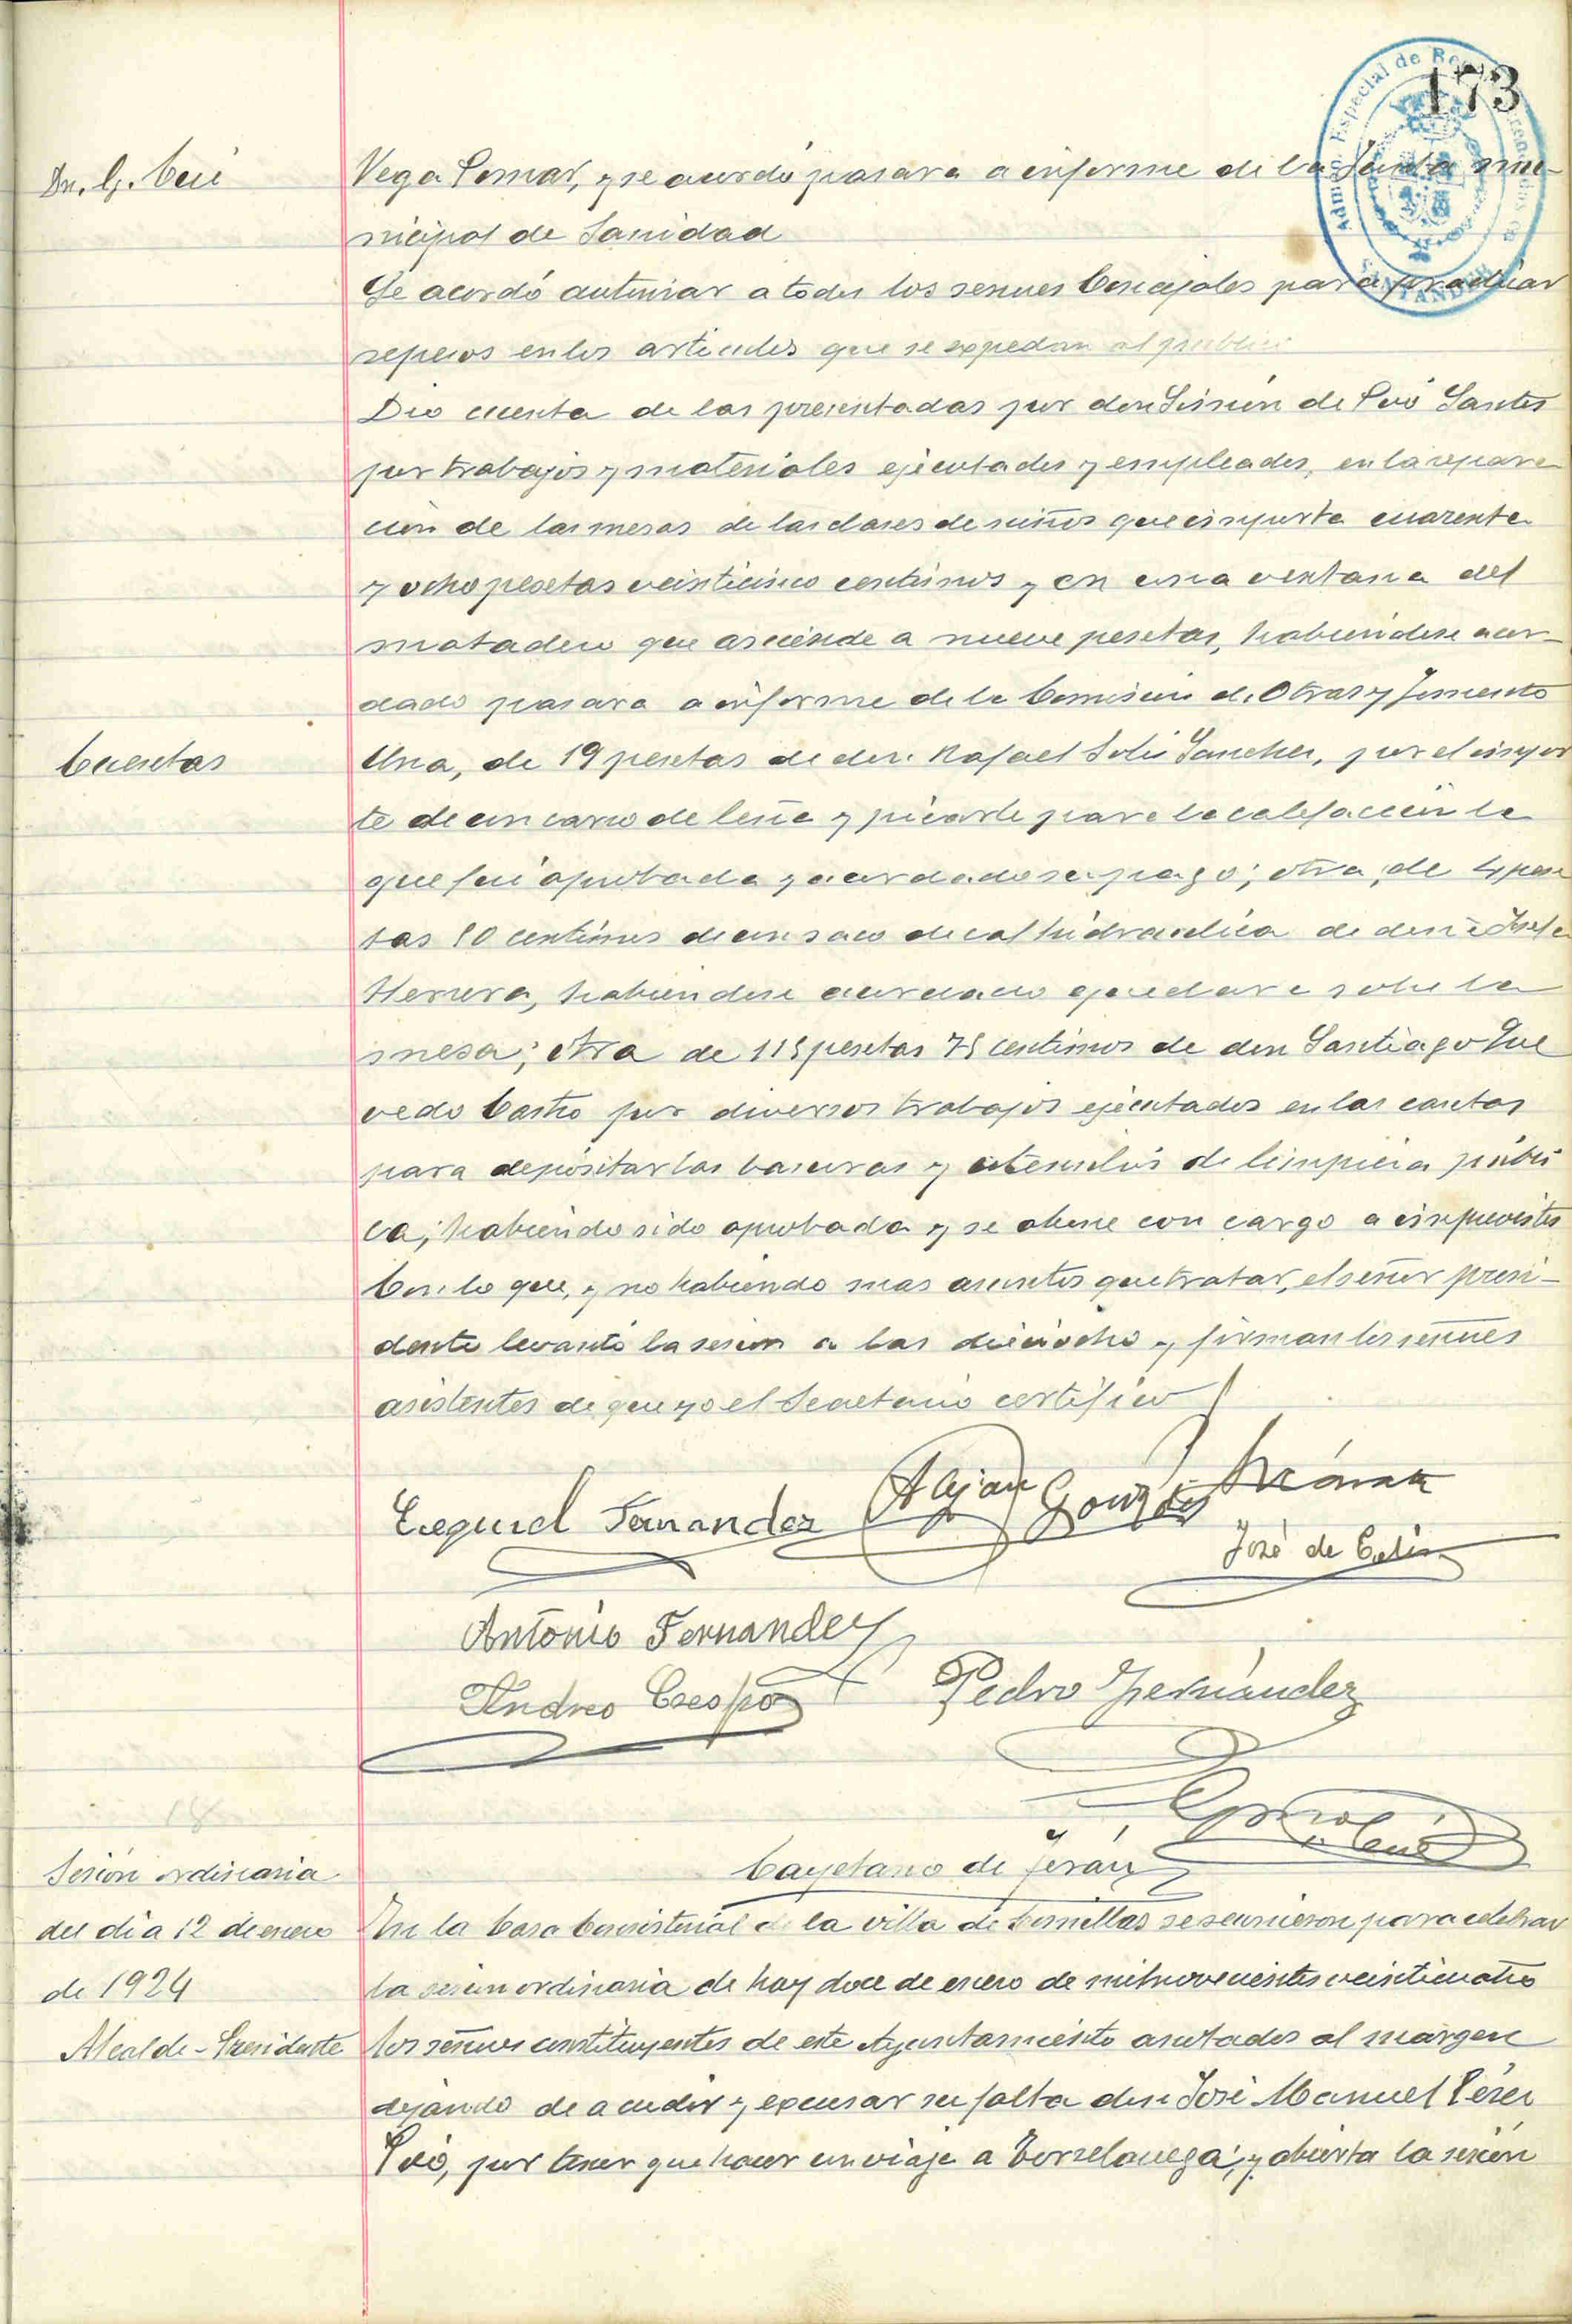 173
Admón Especial de Rentas Arrendadas de
SANTANDER
Vega Lomar, y se acordó pasara a informe de la Junta mu-
nicipal de Sanidad
Se acordó autorizar a todos los señores Concejales para practicar
repesos en los articulos que se expedan al publico
Dio cuenta de las presentadas por don Simón de Poó Santos
por trabajos y materiales ejecutados y empleados, en la repara
cion de las mesas de las clases de niños que importa cuarenta
y ocho pesetas veinticinco centimos y en una ventana del
matadero que asciende a nueve pesetas, habiendose acor-
dado pasara a informe de la Comision de Obras y Fomento
Cuentas
Una, de 19 pesetas de don Rafael Solis Sanchez, por el impor
te de un carro de leña y picarle para la calefaccion la
que fué aprobada y acordado su pago; otra, de 4 pese
tas 80 centimos de un saco de cal hidraulica de doña Josefa
Herrera, habiendose acordado quedara sobre la
mesa; otra de 115 pesetas 75 centimos de don Santiago Que
vedo Castro por diversos trabajos ejecutados en las
para depositar las basuras y utensilios de limpieza públi
ca; habiendo sido aprobada y se abone con cargo a imprevistos
Con lo que, y no habiendo mas asuntos que tratar, el señor presi-
dente levantó la sesion a las dieciocho y firman los señores
asistentes de que yo el Secretario certifico
Ezequiel Fernandez
Alejan Gonzales
José de
Antonio Fernandez
Andres Crespo
Pedro Fernández
Cayetano de Terán
18
Sesión ordinaria
del dia 12 de enero
de 1924
Alcalde-Presidente
En la Casa Consistorial de la villa de Comillas se reunieron para celebrar
la sesion ordinaria de hoy doce de enero de mil novecientos veinticuatro
los señores constituyentes de este Ayuntamiento anotados al margen
dejando de acudir y excusar su falta don José Manuel Pérez
Poó, por tener que hacer un viaje a Torrelavega; y abierta la sesión